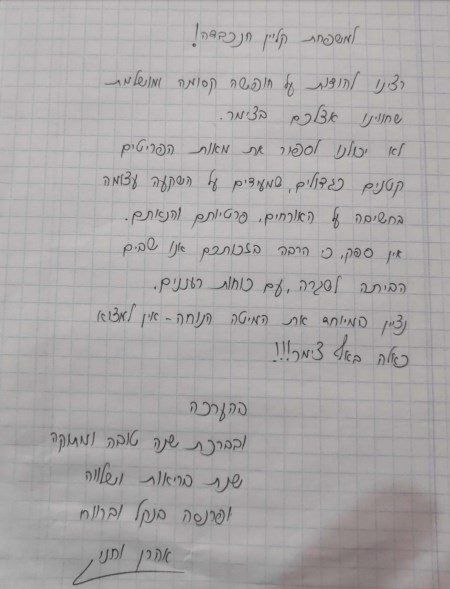 למשפחת קליין הנכבדה!
רצינו להודות על חופשה קסומה ומושלמת
שחווינו אצלכם בצימר.
לא יכולנו לספור את מאות הפריטים
קטנים כגדולים, שמעידים על השקעה עצומה
בחשיבה על האורחים, פרטיותם והנאתם.
אין ספק, כי הרבה בזכותכם אנו שבים
הביתה לשגרה, עם כוחות רעננים.
נציין במיוחד את המיטה הנוחה - אין למצוא
כאלה באף צימר!!!
בהערכה
ובברכת שנה טובה ומתוקה
שנת בריאות ושלווה
ופרנסה בנקל וברווח
אהרן וחני